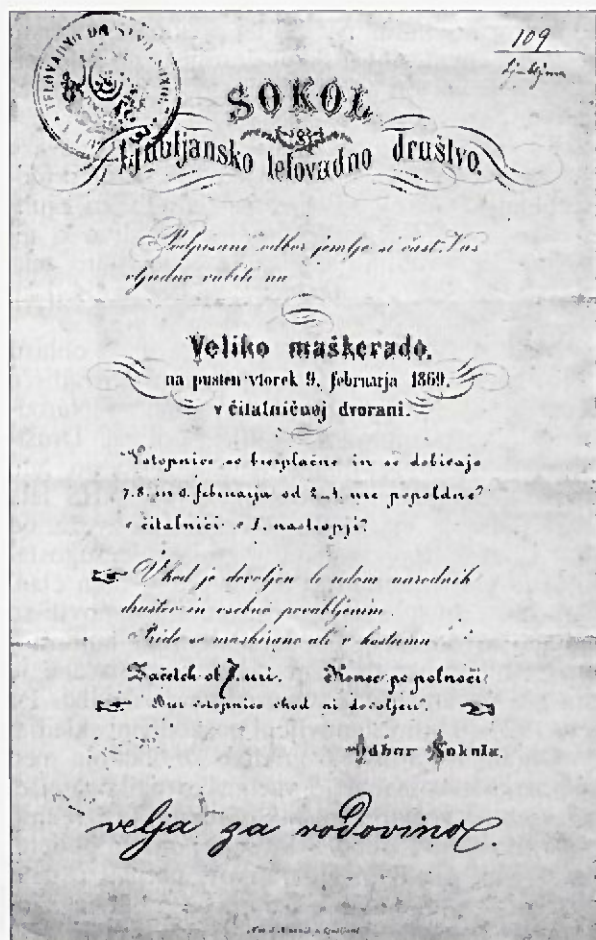 TELOVADNO
SOKOL
109
Ljubljana
SOKOL
Ljubljansko telovadno društvo.
Podpisani odbor jemlje si čast, Vas
uljudno vabiti na
Veliko maškerado,
na pusten vtorek 9. februarja 1869.
v čitalničnej dvorani.
Vstopnice so brezplačne in se dobivajo
7. 8. in 9. februarja od 2–4. ure popoldne
v čitalnici v I. nastropji
Vhod je dovoljen le udom narodnih
društev in osebno povabljenim.
Pride se maskirano ali v kostumu
Začetek ob 7. uri. Konec po polnoči
Brez vstopnice vhod ni dovoljen.
Odbor Sokola.
velja za rodovino